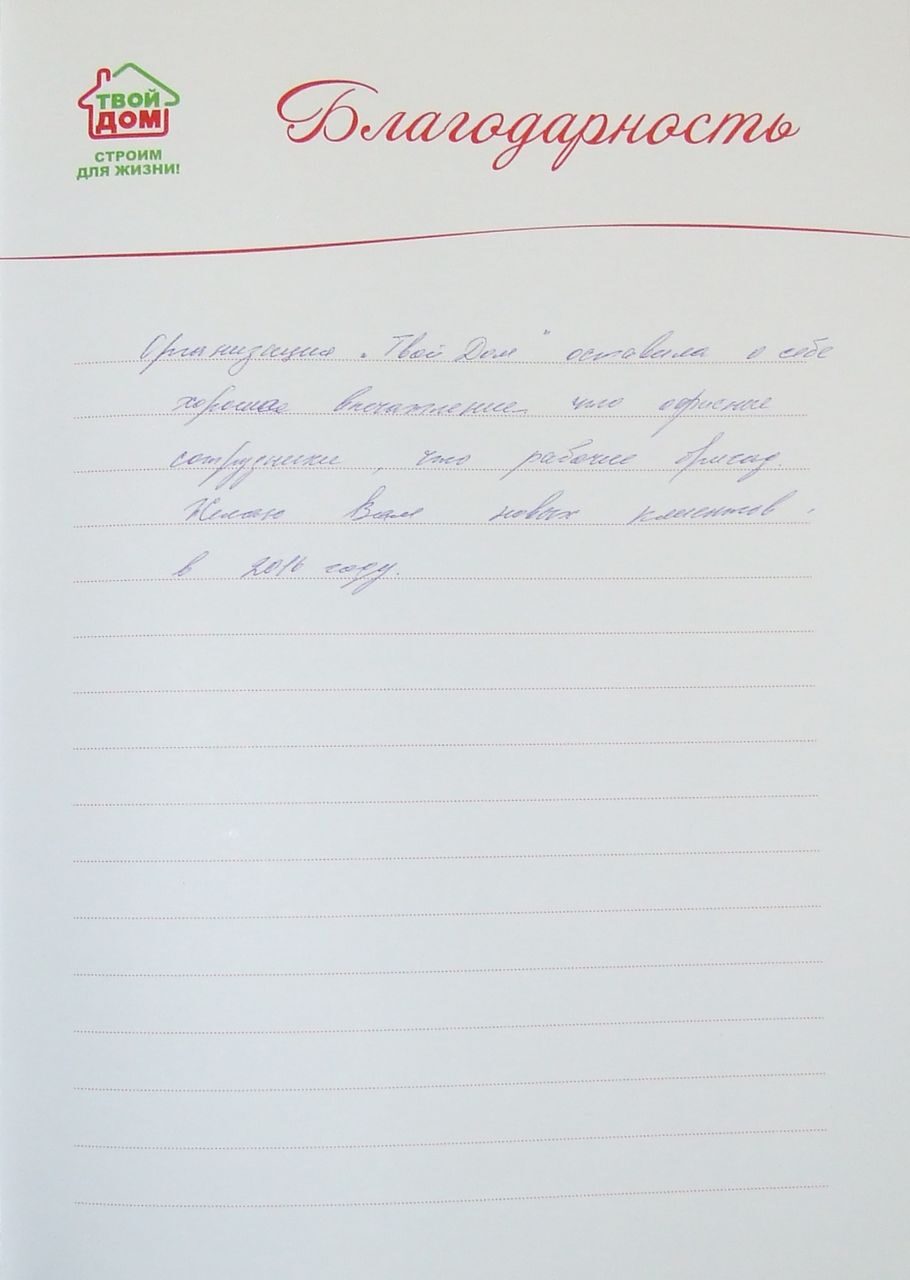 ТВОЙ
ДОМ
СТРОИМ
ДЛЯ ЖИЗНИ!
Благодарность
Организация „Твой Дом" оставила о себе
хорошее впечатление, что офисные
сотрудники, что рабочие бригад.
Желаю Вам новых клиентов
в 2016 году.